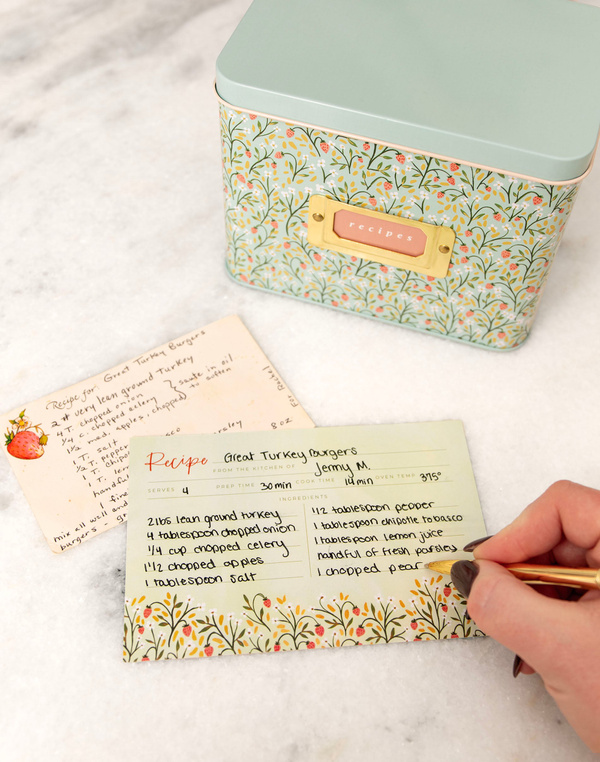 recipes
Recipe for: Great Turkey Burgers
2 # very lean ground turkey
4 T. chopped onion
1/4 c. chopped celery
1 1/2 med. apples, chopped
} saute in oil
to soften
1 T. salt
1/2 T. pepper
1 T.
1 T.
8 oz
mix all well and
burgers -
Recipe Great Turkey Burgers
FROM THE KITCHEN OF Jenny M.
SERVES 4 PREP TIME 30 min COOK TIME 14 min OVEN TEMP 375°
INGREDIENTS
2 lbs lean ground turkey
4 tablespoon chopped onion
1/4 cup chopped celery
1 1/2 chopped apples
1 tablespoon salt
1/2 tablespoon pepper
1 tablespoon chipotle tobasco
1 tablespoon lemon juice
handful of fresh parsley
1 chopped pear